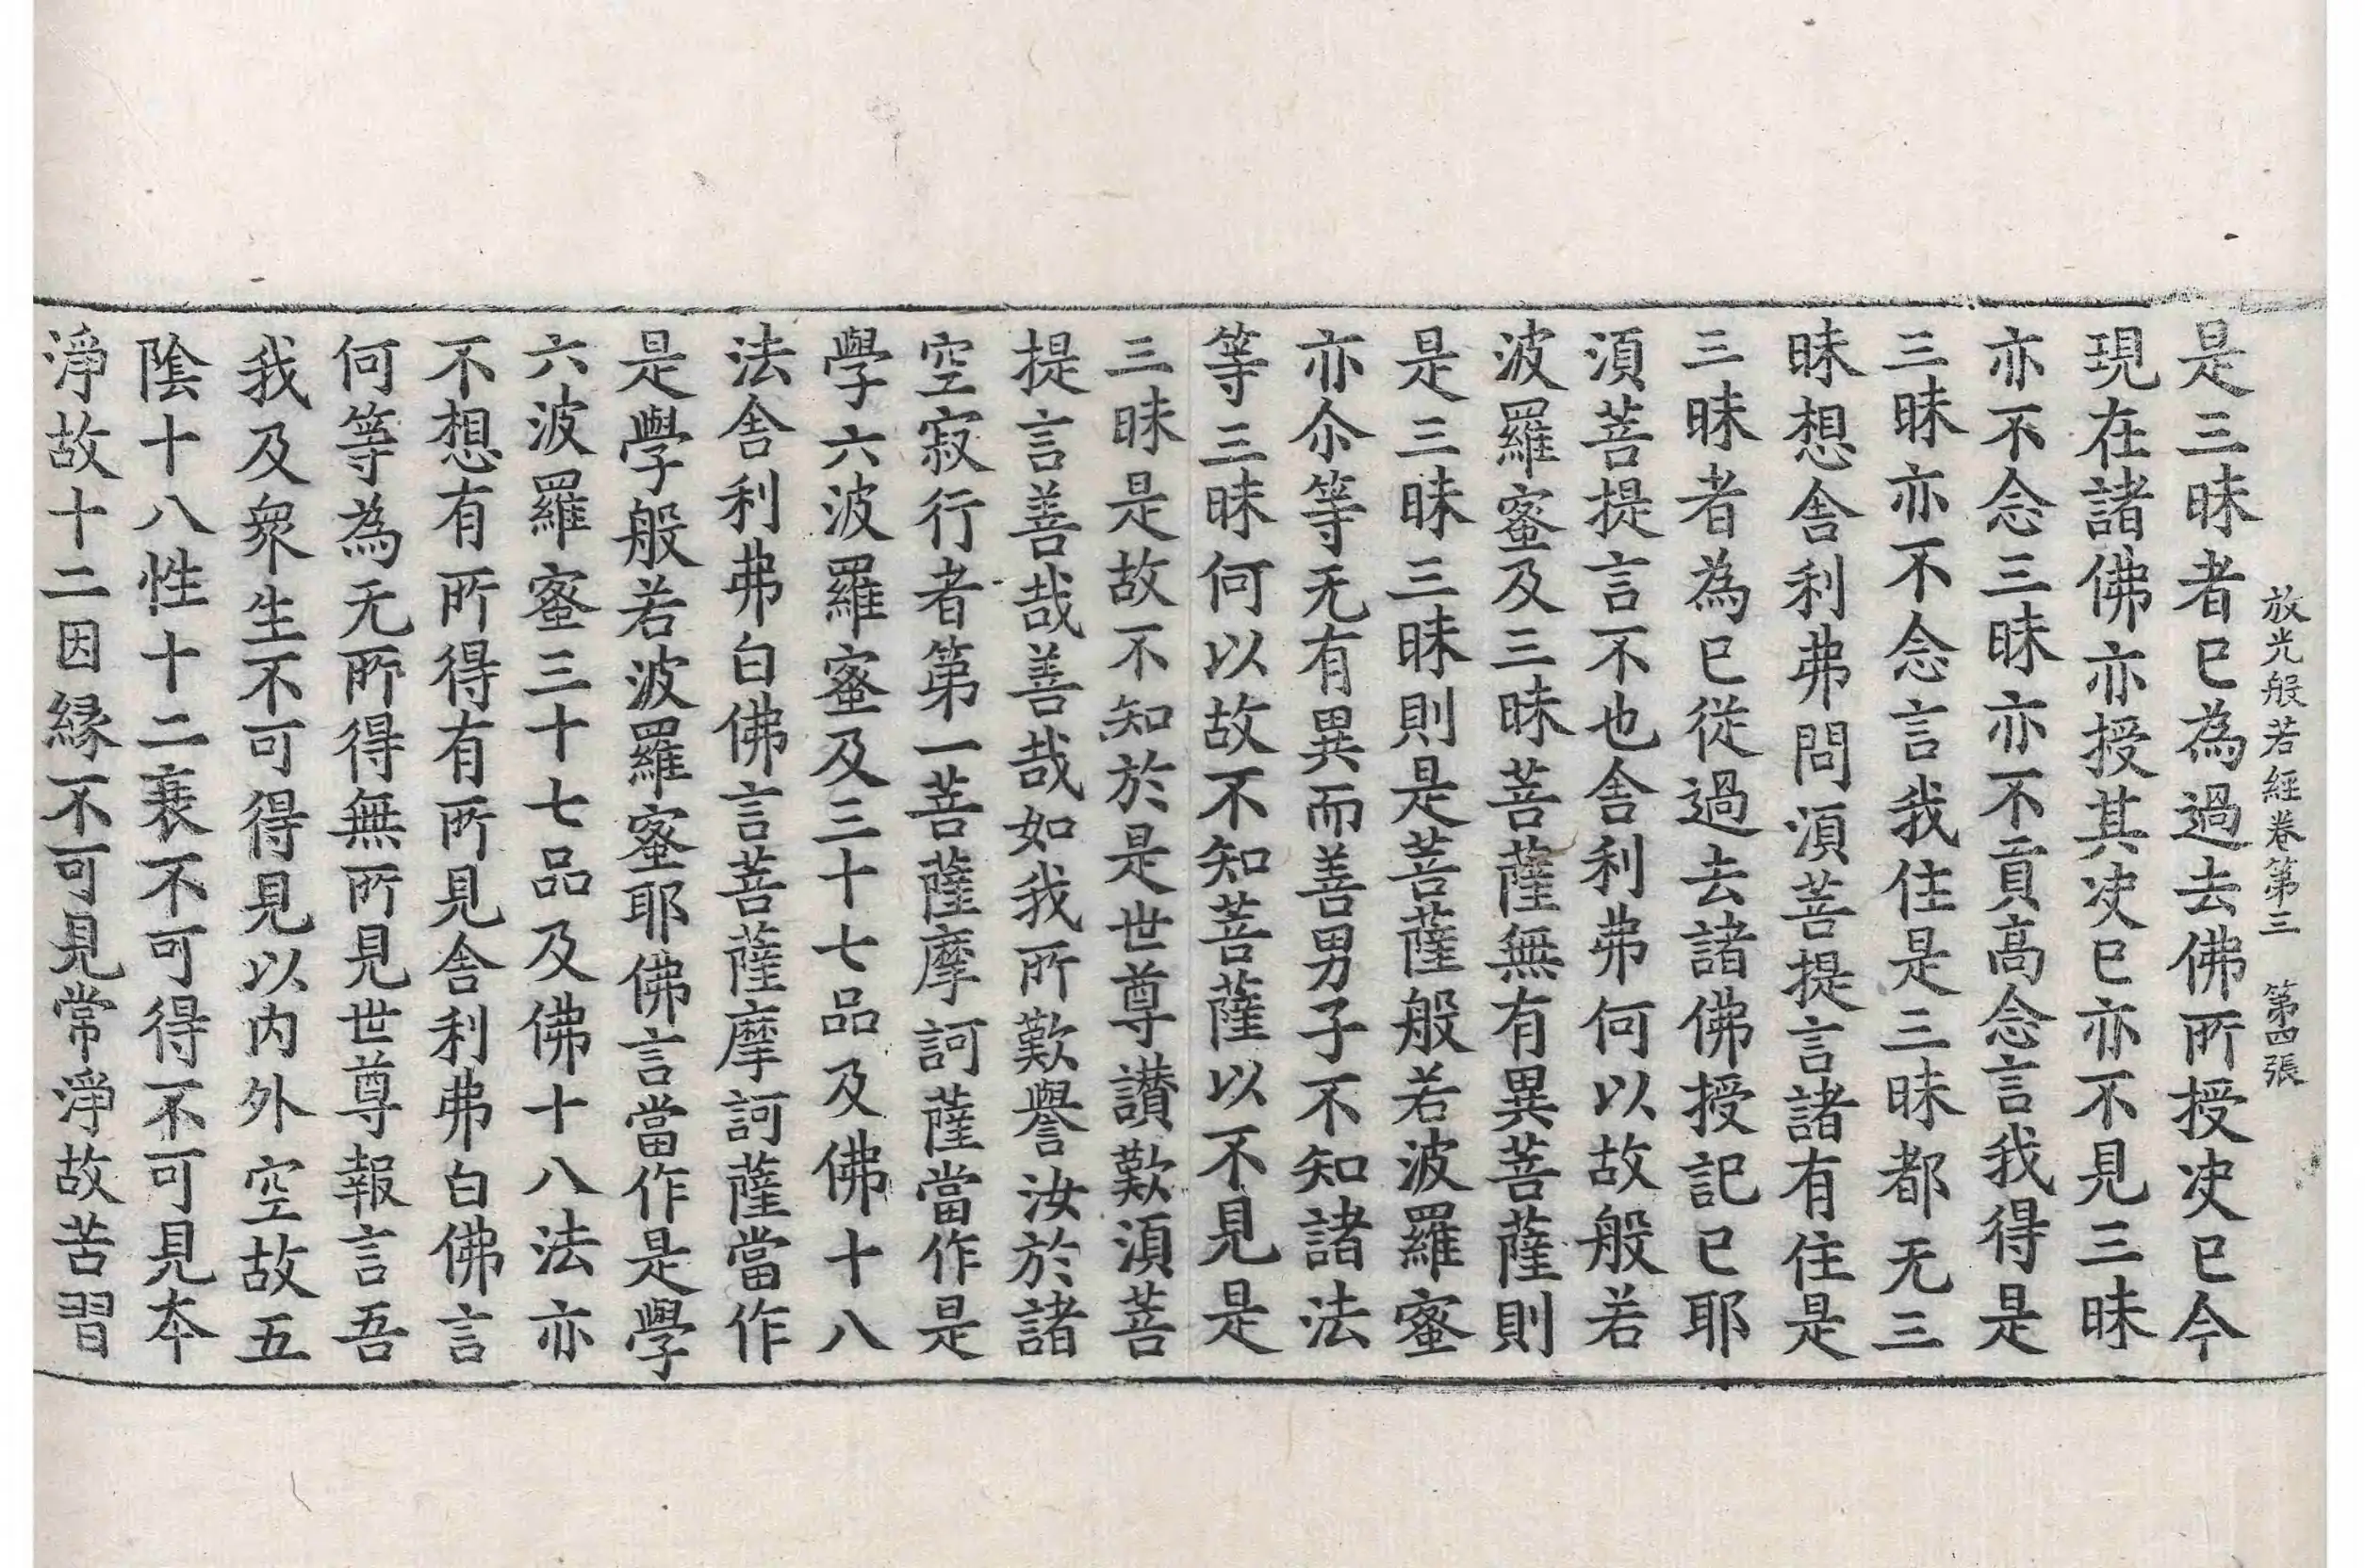 放光般若經卷第三　第四張
是三昧者已為過去佛所授决已今
現在諸佛亦授其决已亦不見三昧
亦不念三昧亦不貢高念言我得是
三昧亦不念言我住是三昧都无三
昧想舍利弗問湏菩提言諸有住是
三昧者為已從過去諸佛授記已耶
湏菩提言不也舍利弗何以故般若
波羅蜜及三昧菩薩無有異菩薩則
是三昧三昧則是菩薩般若波羅蜜
亦尒等无有異而善男子不知諸法
等三昧何以故不知菩薩以不見是
三昧是故不知於是世尊讃歎湏菩
提言善哉善哉如我所歎譽汝於諸
空寂行者第一菩薩摩訶薩當作是
學六波羅蜜及三十七品及佛十八
法舍利弗白佛言菩薩摩訶薩當作
是學般若波羅蜜耶佛言當作是學
六波羅蜜三十七品及佛十八法亦
不想有所得有所見舍利弗白佛言
何等為无所得無所見世尊報言吾
我及衆生不可得見以内外空故五
陰十八性十二衰不可得不可見本
淨故十二因縁不可見常淨故苦習